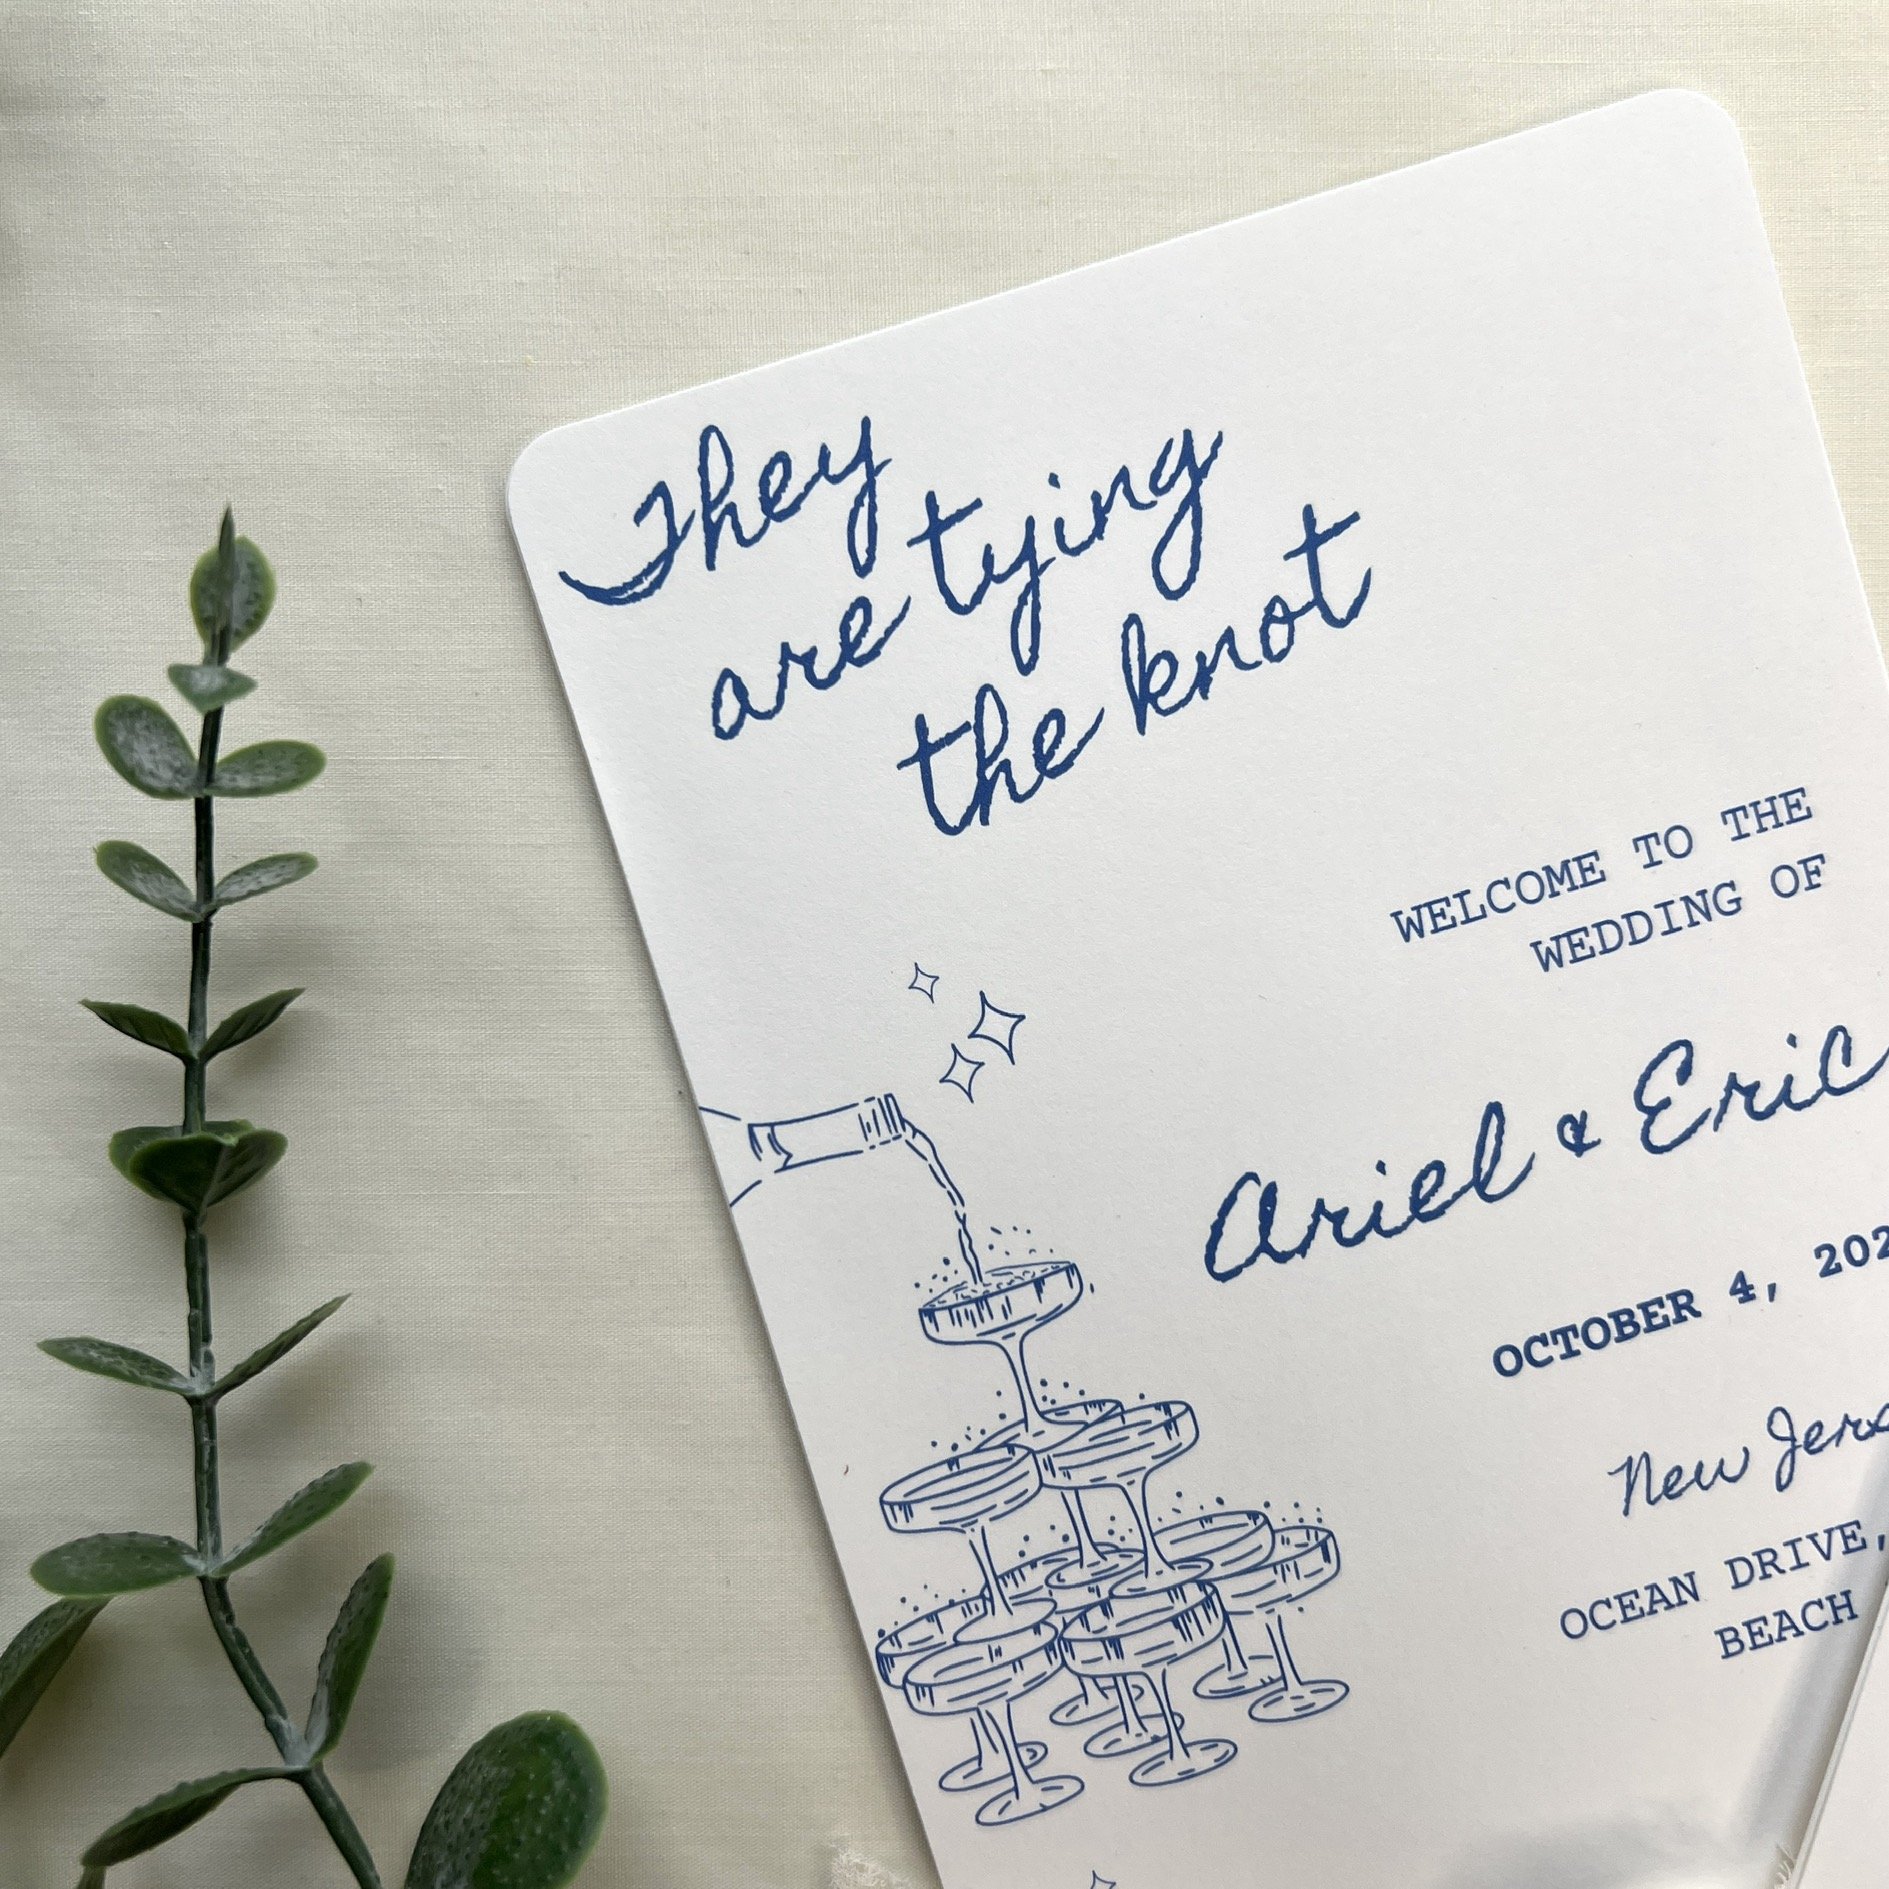 They
are tying
the knot
WELCOME TO THE
WEDDING OF
Ariel & Eric
OCTOBER 4,
New
OCEAN DRIVE,
BEACH